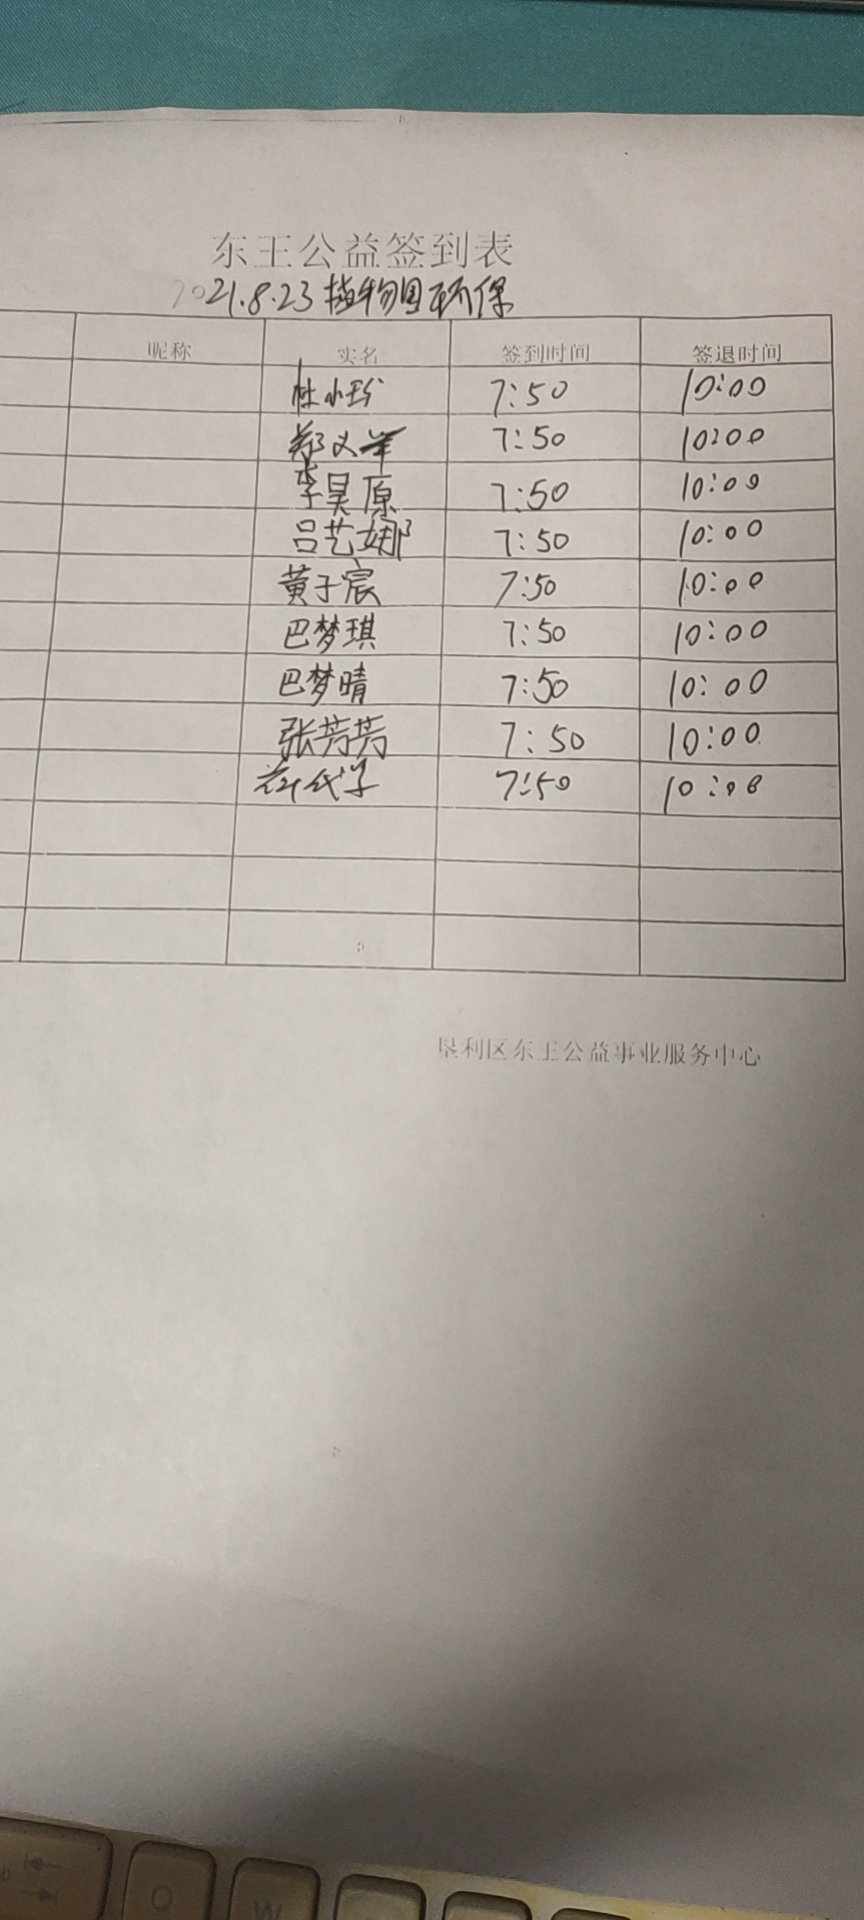 东王公益签到表
2021.8.23 植物园环保
昵称 实名 签到时间 签退时间
杜小玲 7:50 10:00
郑义 7:50 10:00
李昊原 7:50 10:00
吕艺娜 7:50 10:00
黄子宸 7:50 10:00
巴梦琪 7:50 10:00
巴梦晴 7:50 10:00
张芳芳 7:50 10:00
7:50 10:00
垦利区东王公益事业服务中心
Q W